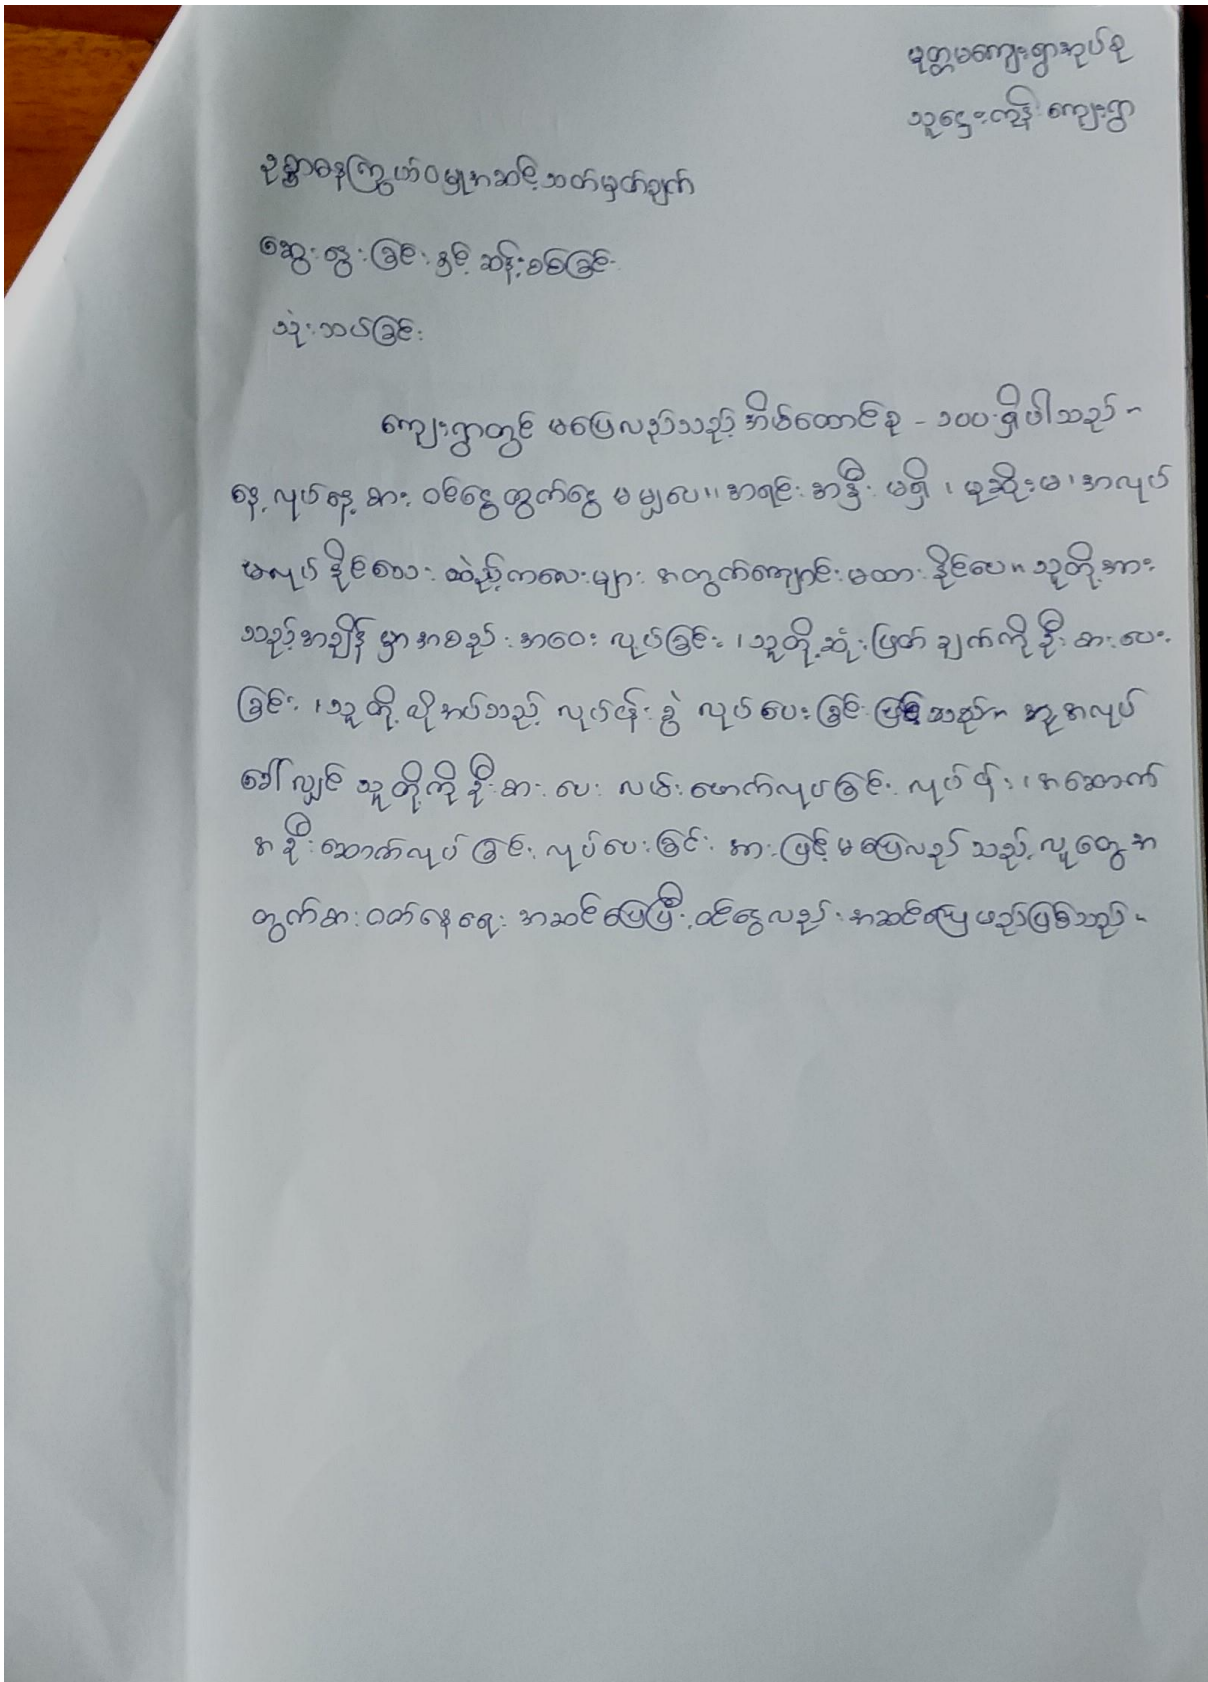 မုတ္တမကျေးရွာအုပ်စု
သူဌေးကုန်း ကျေးရွာ
ဥစ္စာဓနကြွယ်ဝမှုအဆင့်သတ်မှတ်ချက်
ဆွေးနွေးခြင်းနှင့် ဆန်းစစ်ခြင်း
သုံးသပ်ခြင်း
ကျေးရွာတွင် မပြေလည်သည့် အိမ်ထောင်စု - ၁၀၀ ရှိပါသည်။
နေ့လုပ်နေ့စား ဝင်ငွေထွက်ငွေ မမျှပေ။ အရင်းအနှီး မရှိ၊ မုဆိုးမ၊ အလုပ်
မလုပ်နိုင်သေးသည့်ကလေးများ အတွက်ကျောင်းမထားနိုင်ပေ။ သူတို့အား
သည့်အချိန်မှာ အစည်းအဝေး လုပ်ခြင်း၊ သူတို့ဆုံးဖြတ်ချက်ကို ဦးစားပေး
ခြင်း၊ သူတို့လိုအပ်သည့် လုပ်ငန်းခွဲ လုပ်ပေးခြင်းဖြင့် သည်။ အလုပ်
ခေါ်လျှင် သူတို့ကိုဦးစားပေး လမ်းဖောက်လုပ်ခြင်း လုပ်ငန်း၊ အဆောက်
အဦးဆောက်လုပ်ခြင်း လုပ်ပေးခြင်း အားဖြင့် မပြေလည်သည့် လူတွေအ
တွက်စားဝတ်နေရေး အဆင်ပြေပြီး ဝင်ငွေလည်း အဆင်ပြေမည်ဖြစ်သည်။